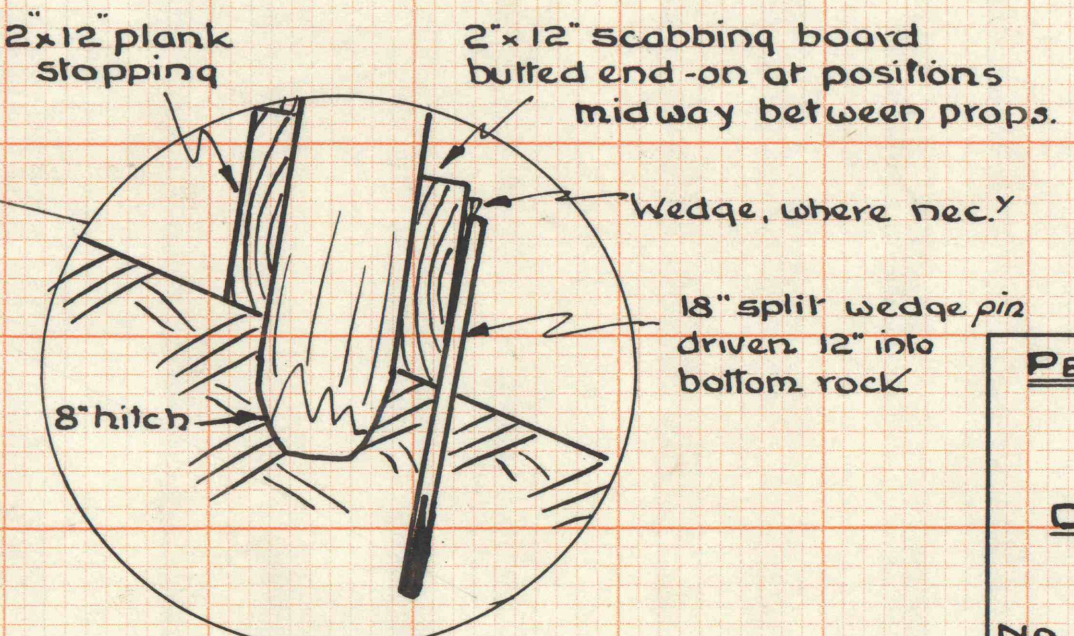 2"x12" plank
stopping
2"x12" scabbing board
butted end-on at positions
midway between props.
Wedge, where nec.y
18" split wedge pin
driven 12" into
bottom rock
8" hitch
No